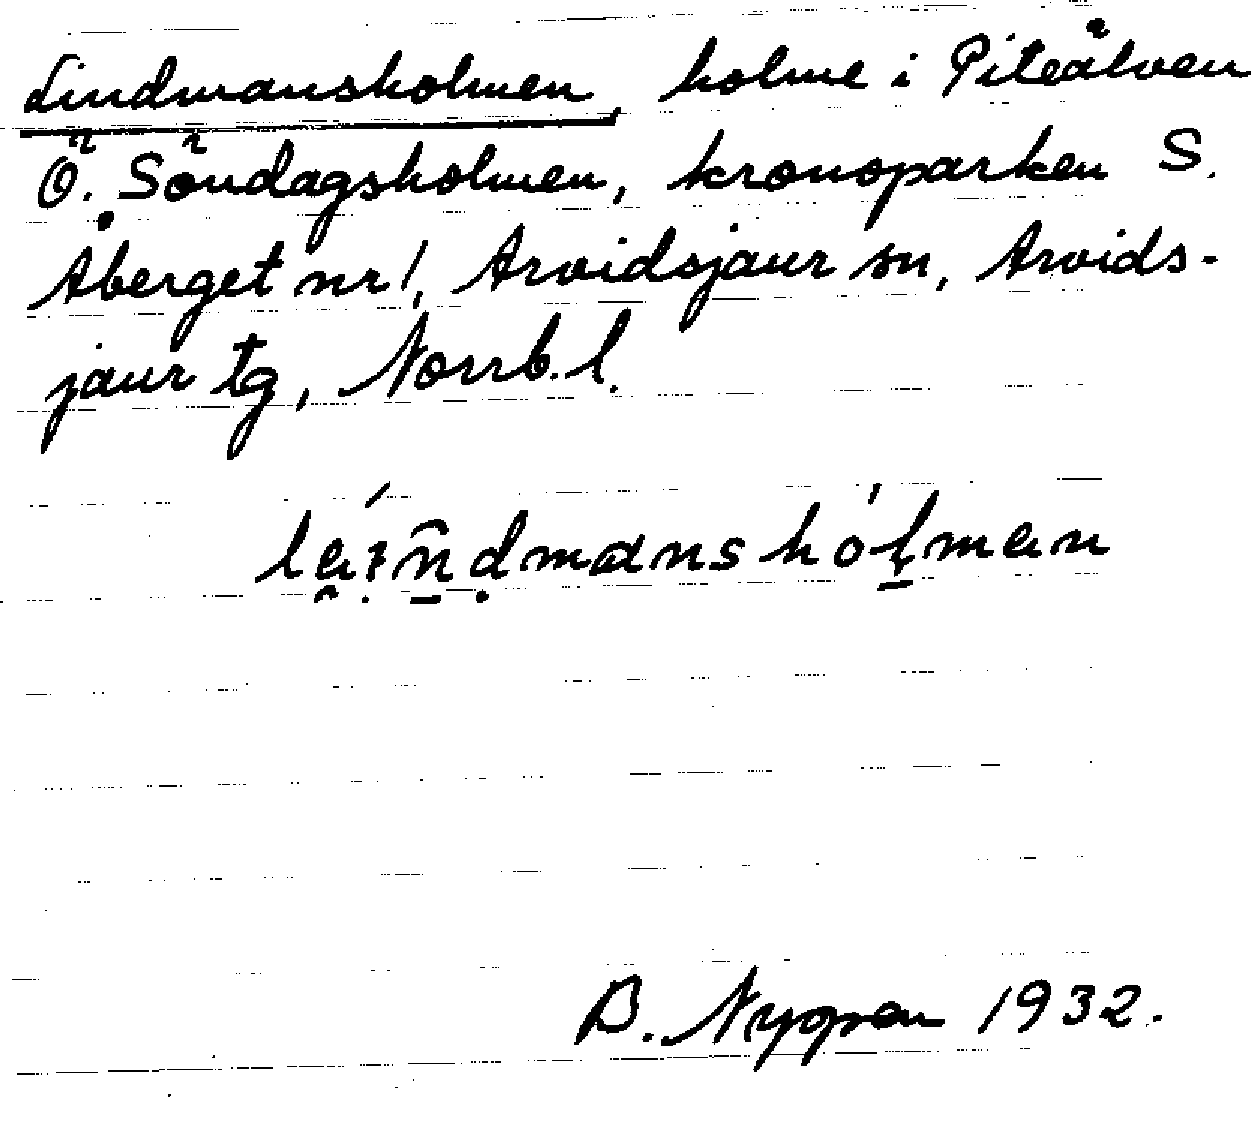 Lindmansholmen, holme i Piteälven
Ö. Söndagsholmen, kronoparken S.
Åberget nr 1, Arvidsjaur sn, Arvids-
jaur tg, Norrb. l.
B. Nygren 1932.